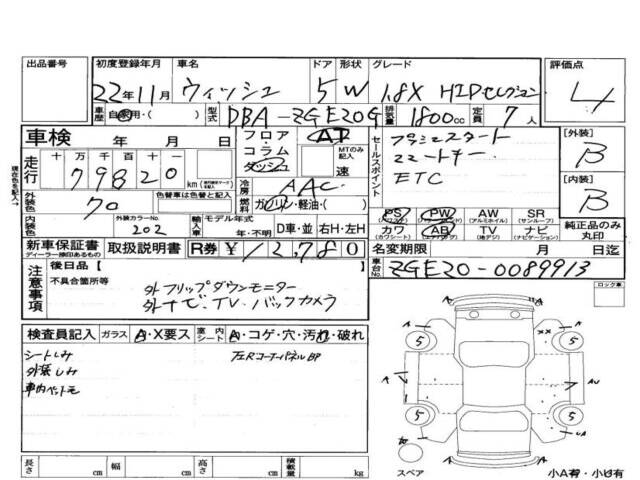 出品番号 初度登録年月 車名 ドア 形状 グレード 評価点
22年11月 ウィッシュ 5 W 1.8X HIDセレクション 4
車歴 自家用・( ) 型式 DBA-ZGE20G 排気量 1800cc 定員 7人
車検 年 月 日 フロア・コラム・ダッシュ AT MTのみ記入 速
セールスポイント プッシュスタート
スマートキー
ETC
[外装] B
[内装] B
走行 十万千百十一 79820 km
冷房 AAC
外装色 70 色替車は色替と記入 燃料 ガソリン・軽油・( )
PS PW AW SR
(パワーウィンドウ) (アルミホイル) (サンルーフ)
カワ AB TV ナビ
(カワシート) (エアバッグ) (地デジ) (ナビゲーション)
純正品のみ丸印
内装色 外装カラーNo. 202 輸入車 モデル年式 年・不明 D車・並 右H・左H
新車保証書 取扱説明書 R券 ¥12,780
ディーラー捺印あるもの
名変期限 月 日迄
車台No. ZGE20-0089913
注意事項 後日品 [ ]
不具合箇所等
外フリップダウンモニター
外ナビ、TV、バックカメラ
ロック車
検査員記入 ガラス A・X要ス 室内シート A・コゲ・穴・汚れ・破れ
シートしみ 左Rコーナーパネル BP
外装しみ
車内ペットモ
A A A XX A A AU A A UA
5 5 5 5
スペア 小A有・小U有
長さ cm 幅 cm 高さ cm 積載量 kg
現在色を記入→